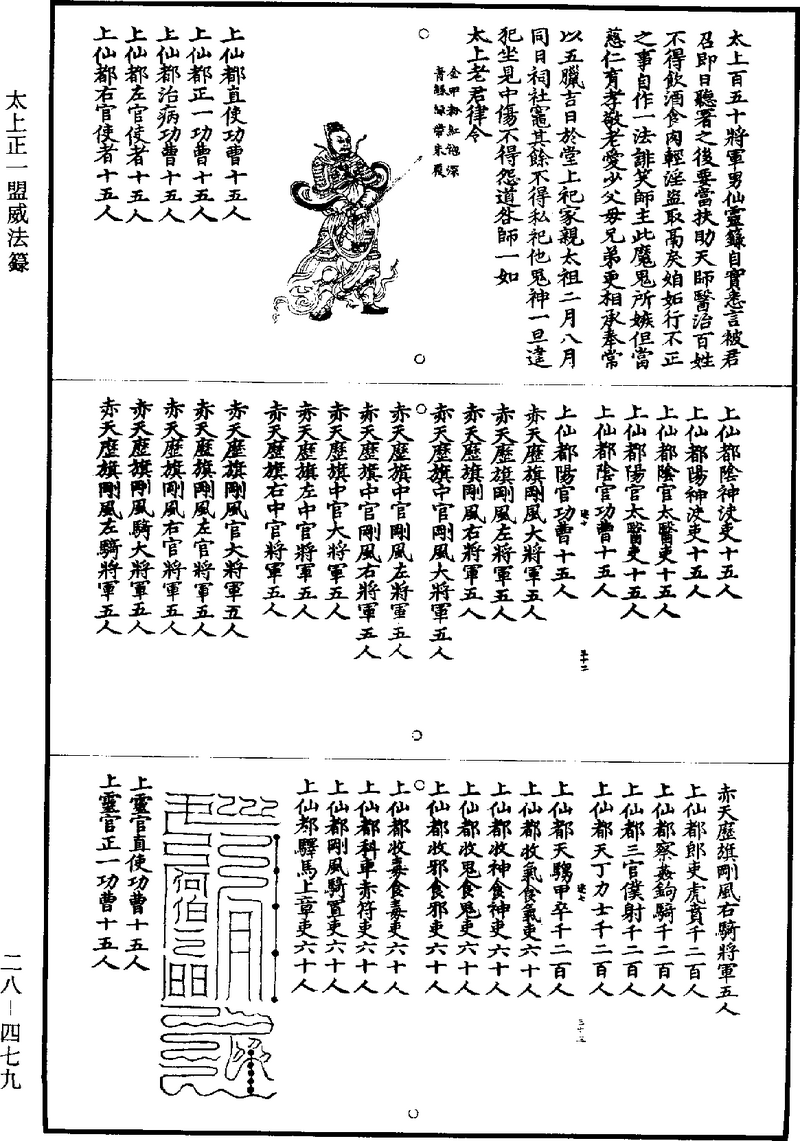 太上正一盟威法籙
二八—四七九
太上百五十將軍男仙靈籙自實悉言被君
召即日聽署之後要當扶助天師醫治百姓
不得飲酒食肉輕淫盜取鬲戾姤妬行不正
之事自作一法誹笑師主此魔鬼所嫉但當
慈仁育孝敬老愛少父母兄弟更相承奉常
以五臘吉日於堂上祀家親太祖二月八月
同日祠社竈其餘不得私祀他鬼神一旦違
犯坐見中傷不得怨道咎師一如
太上老君律令
上仙都直使功曹十五人
上仙都正一功曹十五人
上仙都治病功曹十五人
上仙都左官使者十五人
上仙都右官使者十五人
上仙都陰神決吏十五人
上仙都陽神決吏十五人
上仙都陰官太醫吏十五人
上仙都陽官太醫吏十五人
上仙都陰官功曹十五人
上仙都陽官功曹十五人
赤天歷旗剛風大將軍五人
赤天歷旗剛風左將軍五人
赤天歷旗剛風右將軍五人
赤天歷旗中官剛風大將軍五人
赤天歷旗中官剛風左將軍五人
赤天歷旗中官剛風右將軍五人
赤天歷旗中官大將軍五人
赤天歷旗左中官將軍五人
赤天歷旗右中官將軍五人
赤天歷旗剛風官大將軍五人
赤天歷旗剛風左官將軍五人
赤天歷旗剛風右官將軍五人
赤天歷旗剛風騎大將軍五人
赤天歷旗剛風左騎將軍五人
赤天歷旗剛風右騎將軍五人
上仙都郎吏虎賁千二百人
上仙都察姦鉤騎千二百人
上仙都三官僕射千二百人
上仙都天丁力士千二百人
上仙都天騶甲卒千二百人
上仙都收氣食氣吏六十人
上仙都收神食神吏六十人
上仙都收鬼食鬼吏六十人
上仙都收邪食邪吏六十人
上仙都收毒食毒吏六十人
上仙都科車赤符吏六十人
上仙都剛風騎置吏六十人
上仙都驛馬上章吏六十人
上靈官直使功曹十五人
上靈官正一功曹十五人